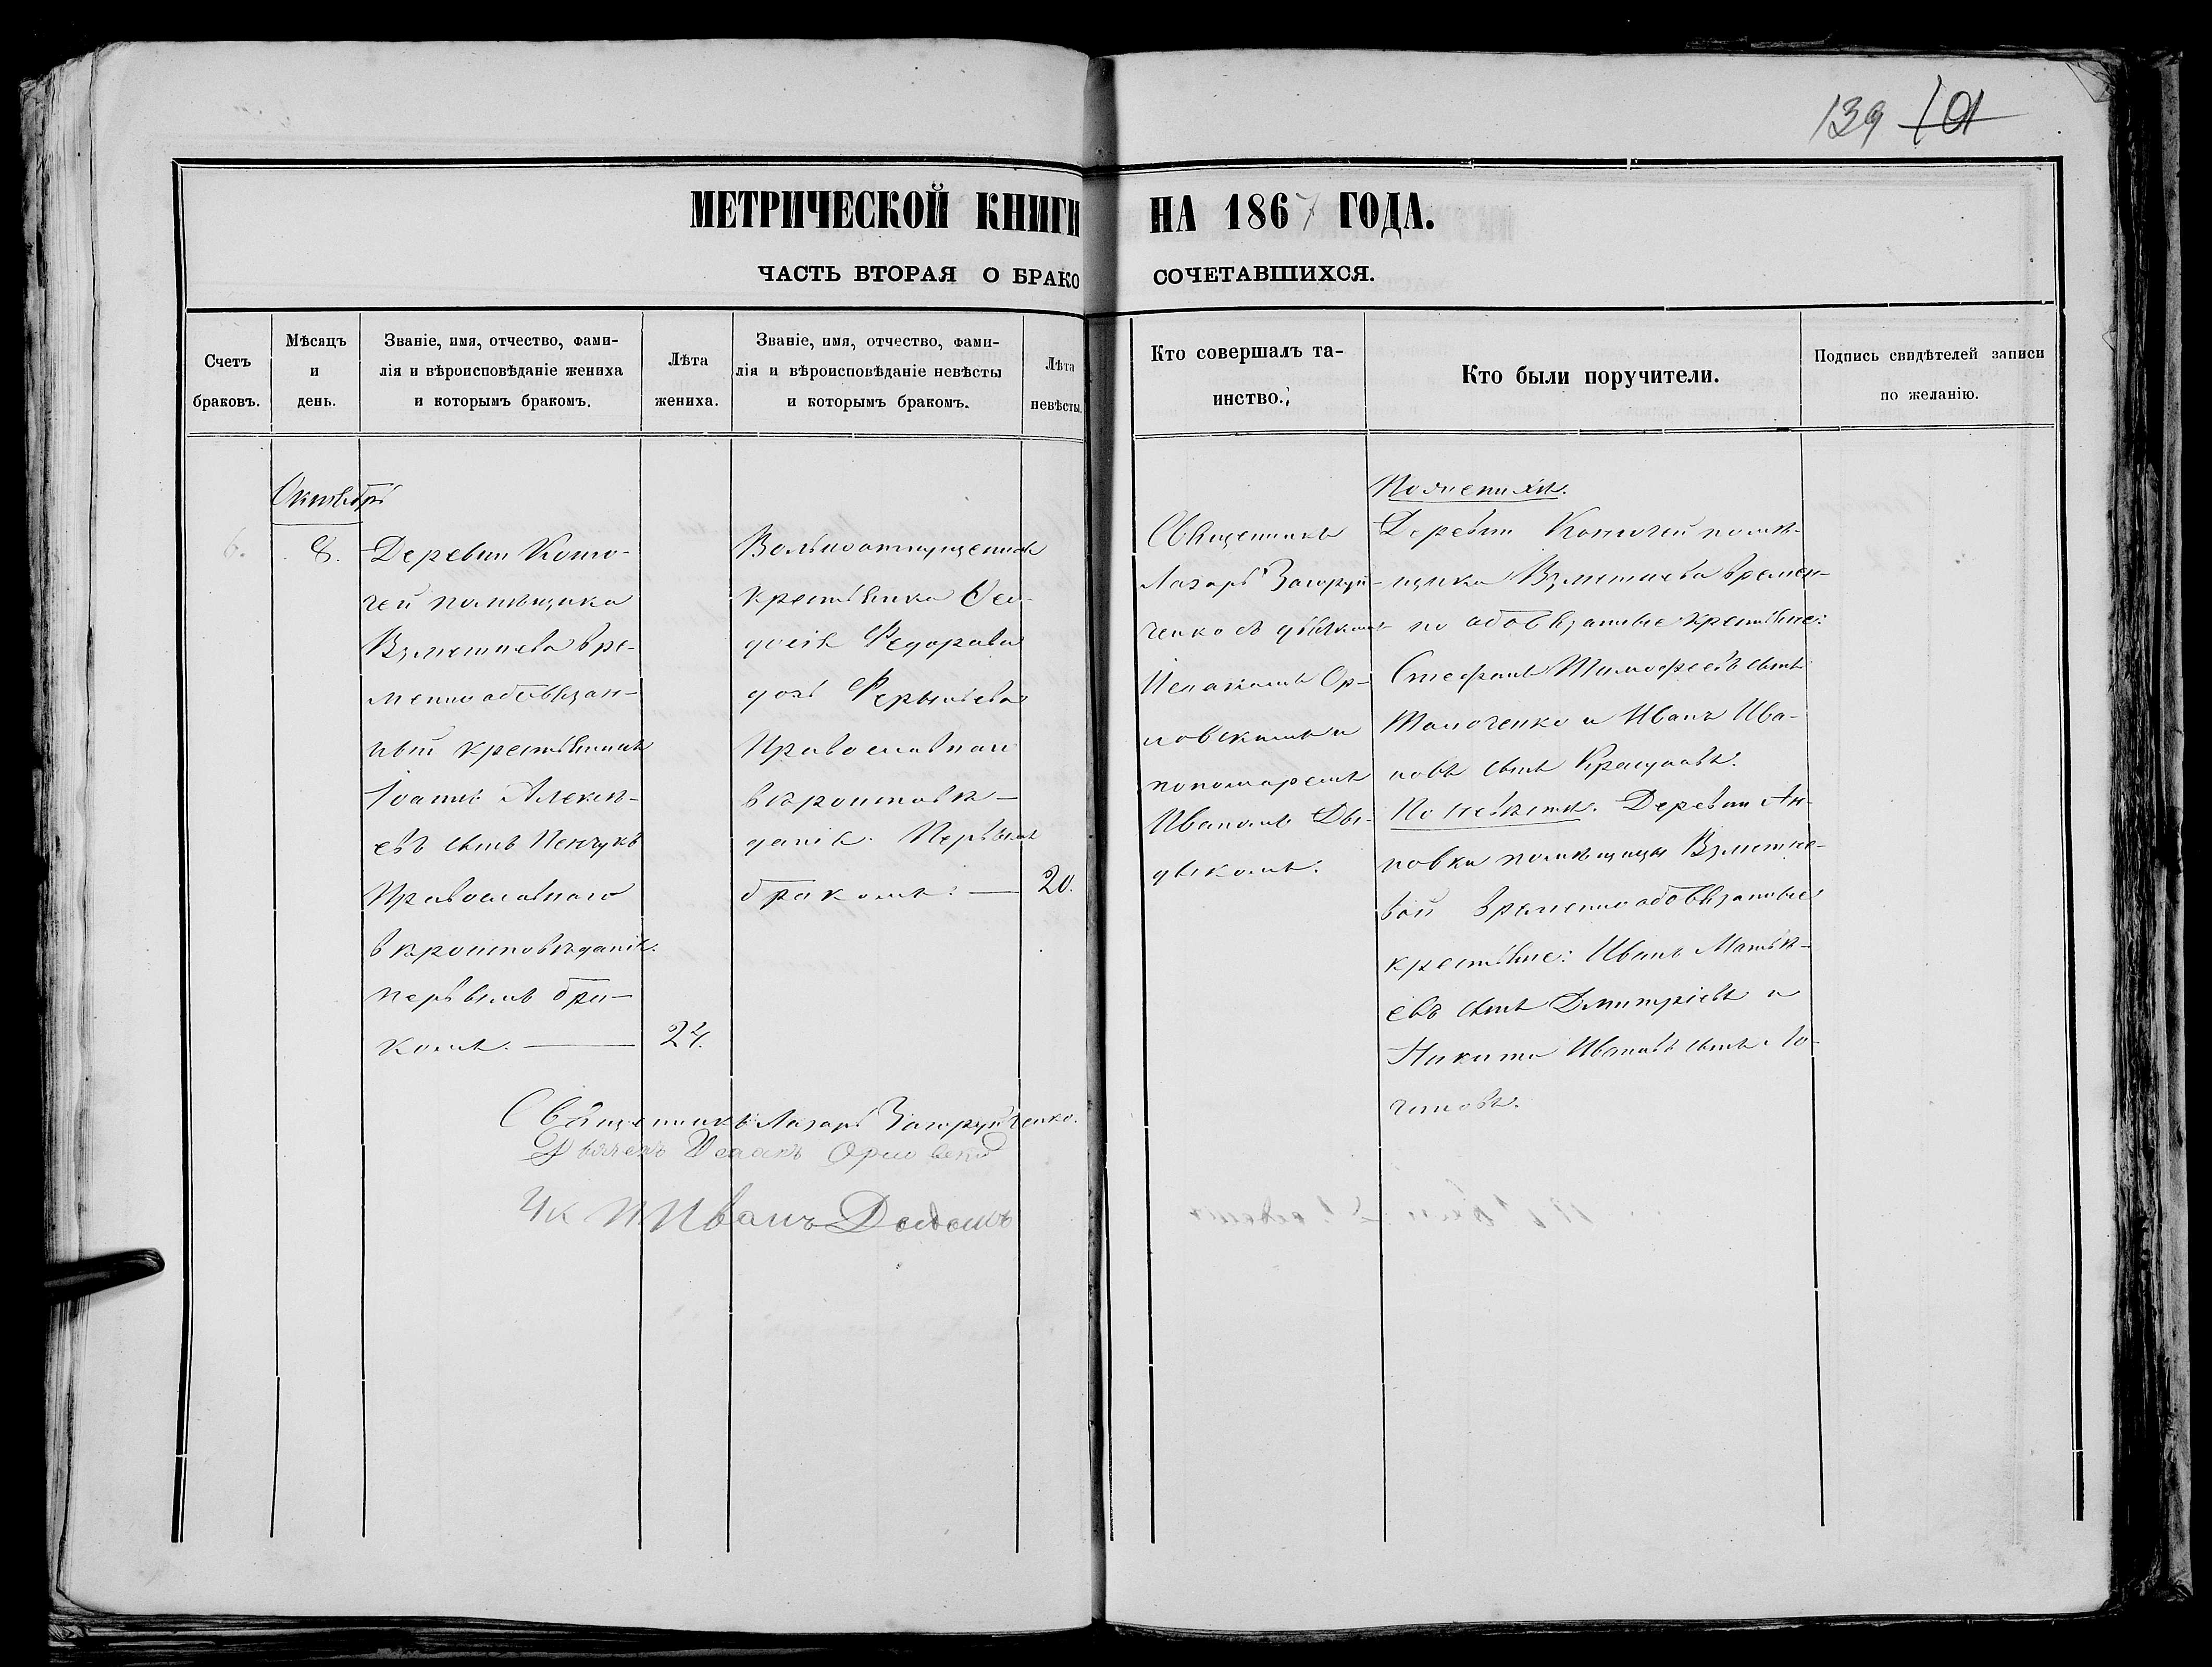 139 101
МЕТРИЧЕСКОЙ КНИГИ НА 1867 ГОДА.
ЧАСТЬ ВТОРАЯ О БРАКОСОЧЕТАВШИХСЯ.
Счетъ
браковъ.
Мѣсяцъ
и
день.
Званіе, имя, отчество, фами-
лія и вѣроисповѣданіе жениха
и которымъ бракомъ.
Лѣта
жениха.
Званіе, имя, отчество, фами-
лія и вѣроисповѣданіе невѣсты
и которымъ бракомъ.
Лѣта
невѣсты.
Кто совершалъ та-
инство.
Кто были поручители.
Подпись свидѣтелей записи
по желанію.
Октябрь
6.
8.
Деревни Коню-
чей помѣщика
вре-
менно обовязан-
ный крестянинъ
Іоаннъ Алексѣ-
евъ сынъ Пенчукъ
Православного
вѣроисповѣданія.
первымъ бра-
комъ. —
24.
Вольноотпущенная
крестянка Фео-
досія Федорова
дочь
Православнаго
вѣроисповѣ-
данія. Первымъ
бракомъ: —
20.
Священникъ
Лазарь Загоруй-
ченко съ дячкомъ
Исакомъ Ор-
ловскимъ и
пономаремъ
Иваномъ Ды-
дыкомъ.
По женихѣ.
Деревни Конючей помѣ-
щика времен-
но обовязаные крестяне:
Стефанъ Тимофеевъ сынъ
и Иванъ Ива-
новъ сынъ
По невѣстѣ. Деревни Ан-
новки помѣщицы
вой временнообовязаные
крестяне: Иванъ Матвѣ-
евъ сынъ Дмитріевъ и
Никита Ивановъ сынъ Ло-
гиновъ.
Священникъ Лазарь Загоруйченко.
Дьячекъ Исаакъ Орловскій
Иванъ